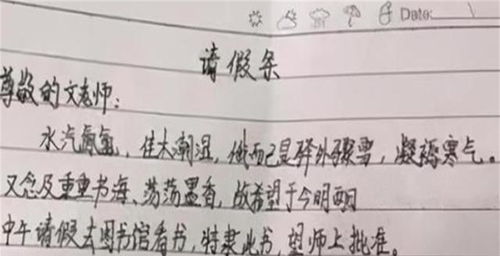 Date:
请假条
尊敬的文老师：
水汽氤氲，佳木潮湿，俄而已显驿外骤雪，凝裯寒气。
又念及重重书海、荡荡墨香，故希望于今明两日
中午请假去图书馆看书，特禀此书，望师上批准。